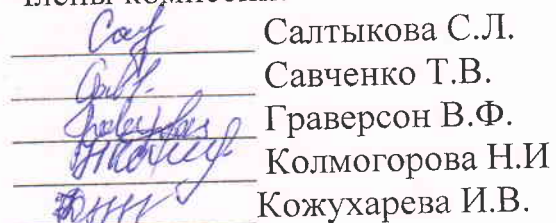 Члены комиссии
Салтыкова С.Л.
Савченко Т.В.
Граверсон В.Ф.
Колмогорова Н.И
Кожухарева И.В.